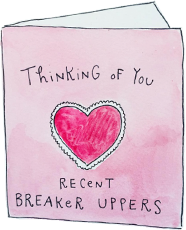 THiNKiNG OF YOU
RECENT
BREAKER UPPERS